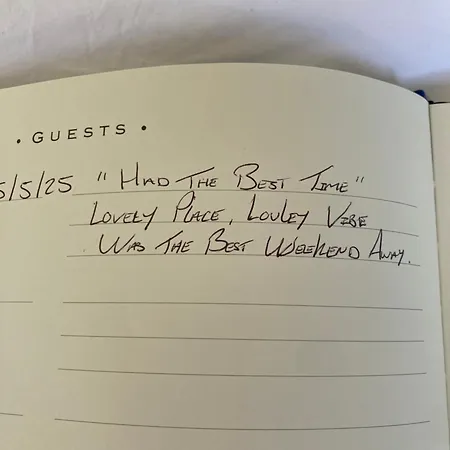 • GUESTS •
5/5/25 "HAD THE BEST TIME"
LOVELY PLACE, LOVLEY VIBE
WAS THE BEST WEEKEND AWAY.